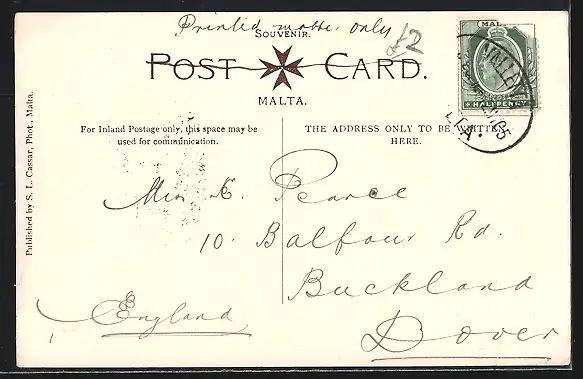 Printed matter only
£2
SOUVENIR.
POST CARD.
MALTA.
For Inland Postage only, this space may be
used for communication.
THE ADDRESS ONLY TO BE WRITTEN
HERE.
MAL
HALFPENNY
VALLE
05
LTA
Published by S. L. Cassar, Phot., Malta.
Miss E. Pearce
10. Balfour Rd.
Buckland
Dover
England